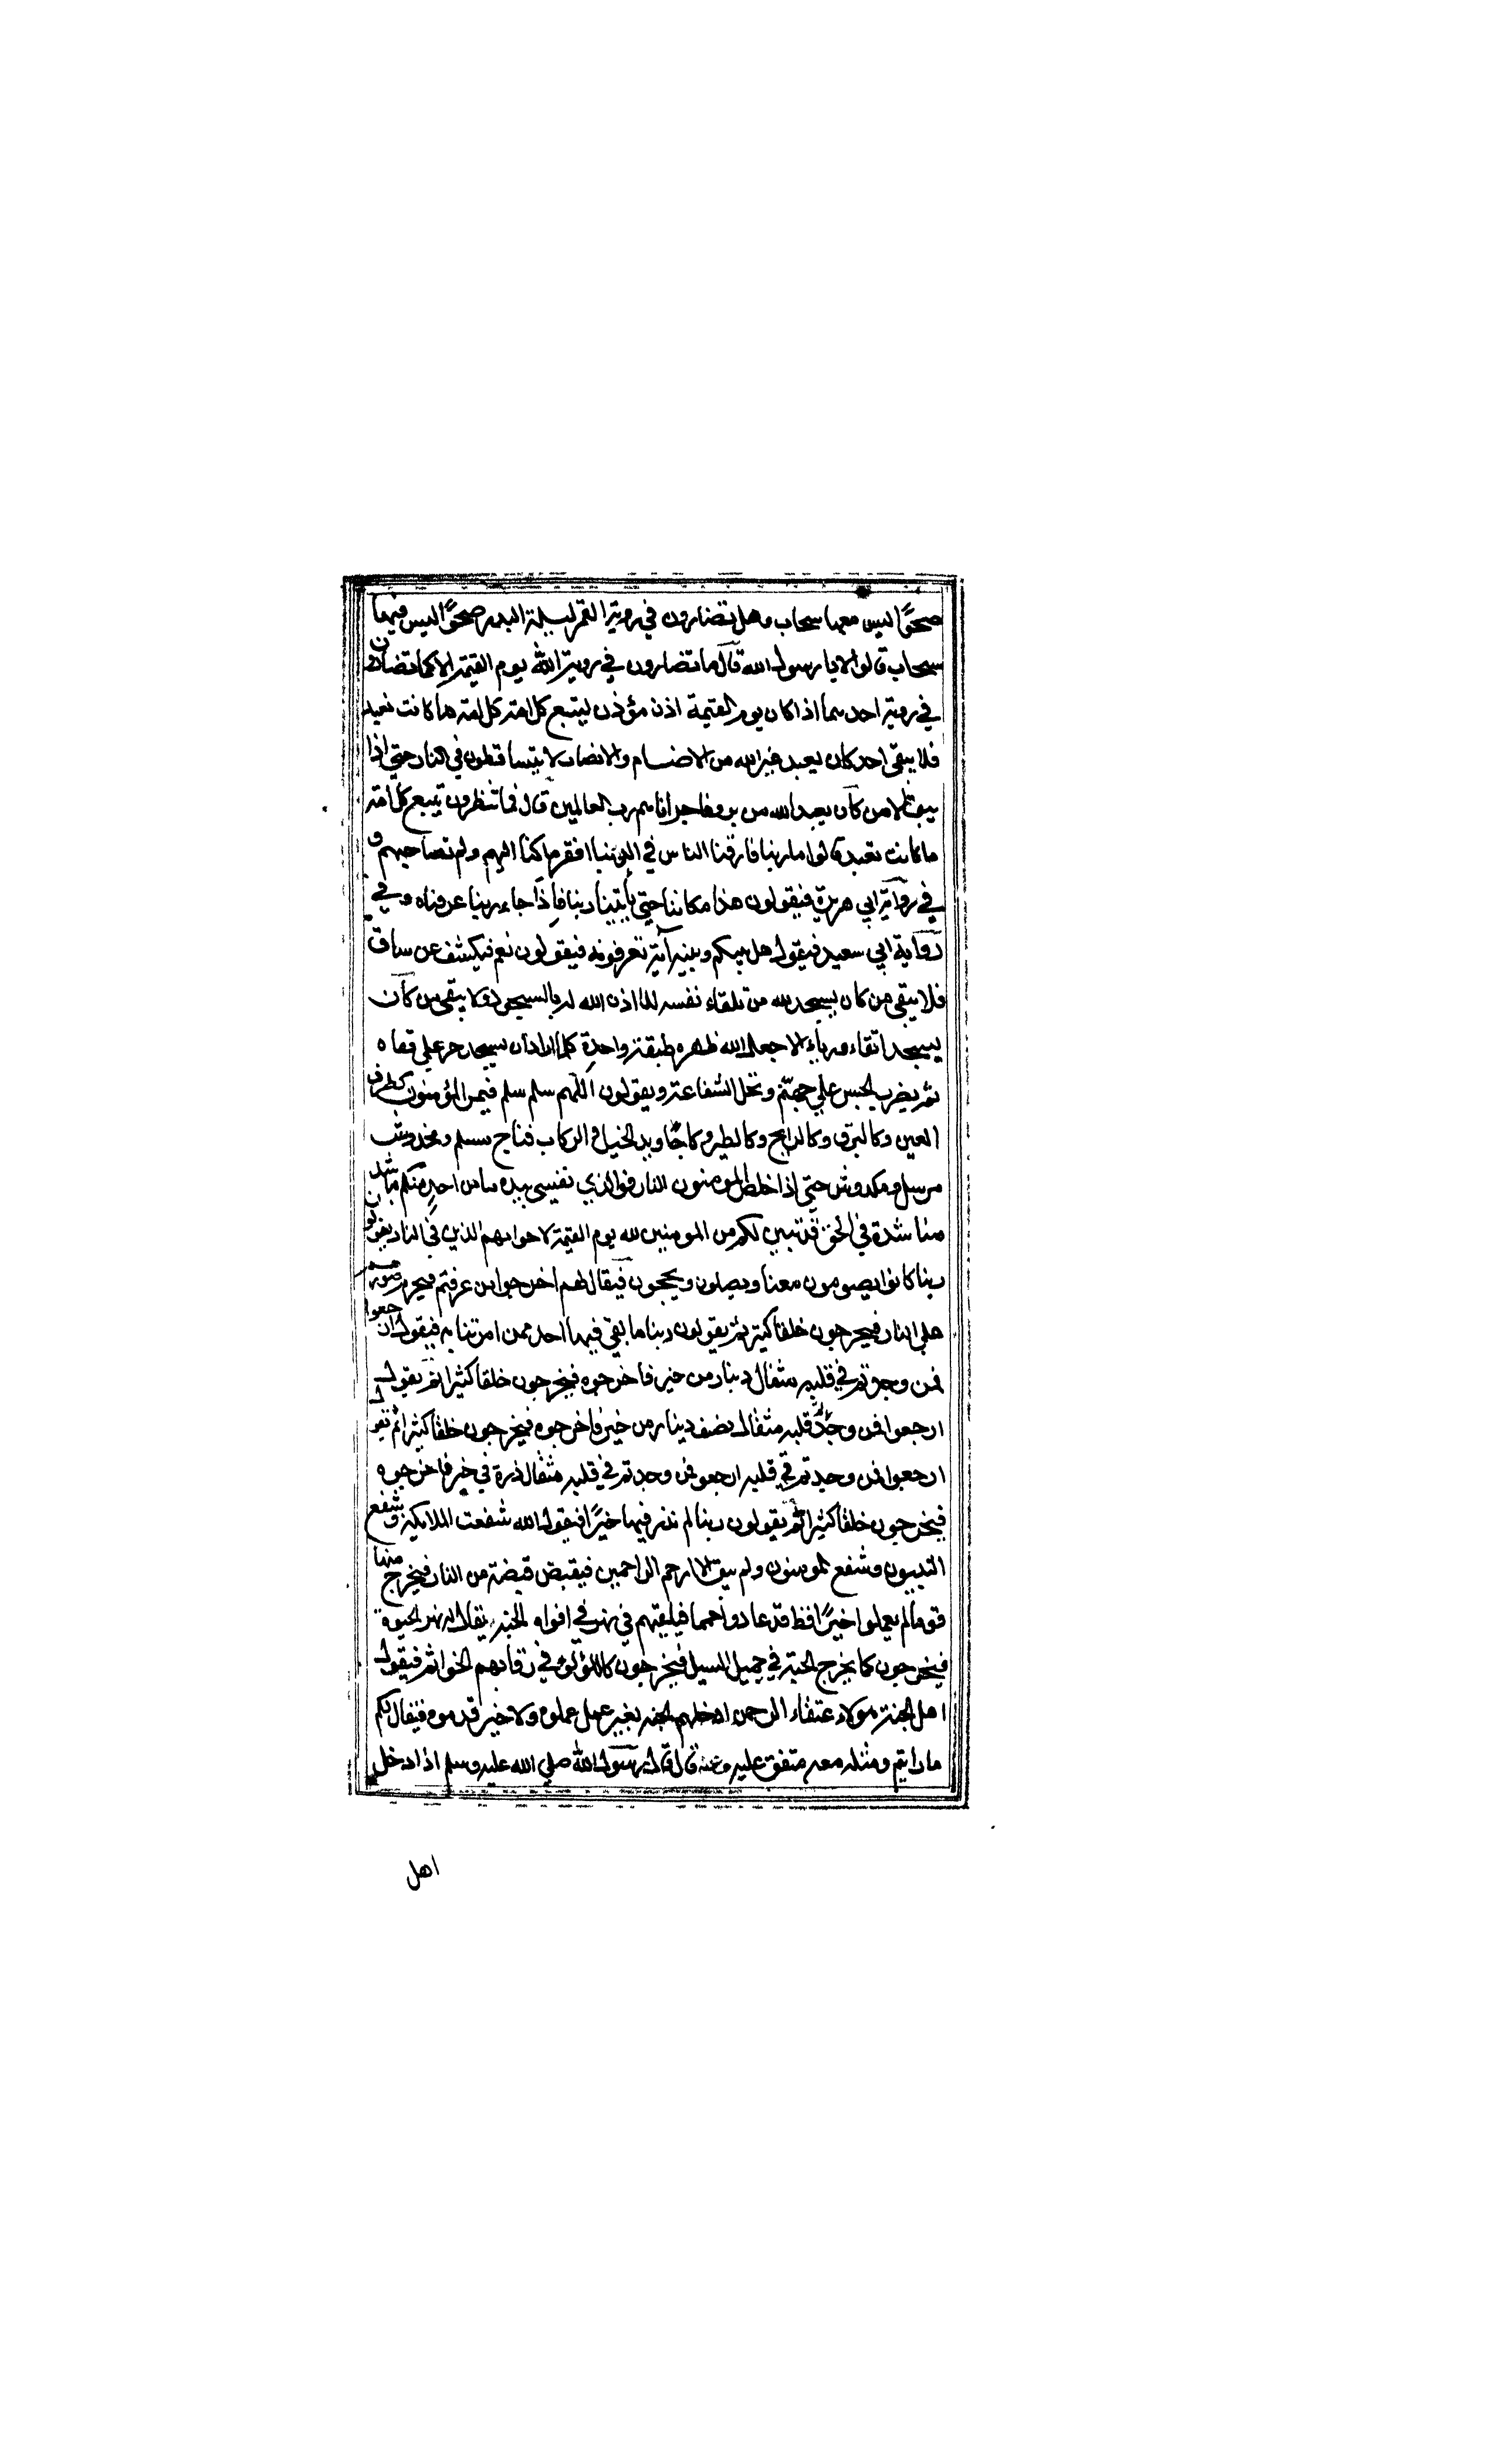 صحوًا ليس معها سحاب وهل تضارون في روية القمر ليلة البدر صحوًا ليس فيها
سحاب قالوا لا يا رسول الله قال ما تضارون في روية الله يوم القيمة الا كما تضارون
في روية احدهما اذا كان يوم القيمة اذن مؤذن ليتبع كل امة ما كانت تعبد
فلا يبقى احد كان يعبد غير الله من الاصنام والانصاب الا يتساقطون في النار حتي اذا
لم يبق الا من كان يعبد الله من بر وفاجر اتاهم رب العالمين قال فما تنظرون يتبع كل امة
ما كانت تعبد قالوا يا ربنا فارقنا الناس في الدنيا افقر ما كنا اليهم ولم نصاحبهم و
في رواية ابي هريرة فيقولون هذا مكاننا حتي يأتينا ربنا فاذا جاء ربنا عرفناه وفي
رواية ابي سعيد فيقول هل بينكم وبينه آية تعرفونه فيقولون نعم فيكشف عن ساق
فلا يبقى من كان يسجد لله من تلقاء نفسه الا اذن الله له بالسجود ولا يبقى من كان
يسجد اتقاء ورياء الا جعل الله ظهره طبقة واحدة كلما اراد ان يسجد خر علي قفاه
ثم يضرب الجسر علي جهنم وتحل الشفاعة ويقولون اللهم سلم سلم فيمر المؤمنون كطرف
العين وكالبرق وكالريح وكالطير وكاجاويد الخيل والركاب فناج مسلم ومخدوش
مرسل ومكدوش حتي اذا خلص المومنون النار فوالذي نفسي بيده ما من احد منكم باشد
مناشدة في الحق قد تبين لكم من المومنين لله يوم القيمة لاخوانهم الذين في النار يقولون
ربنا كانوا يصومون معنا ويصلون ويحجون فيقال لهم اخرجوا من عرفتم فيحرم صورهم
على النار فيخرجون خلقا كثيرا ثم يقولون ربنا ما بقي فيها احد ممن امرتنا به فيقول ارجعوا
فمن وجدتم في قلبه مثقال دينار من خير فاخرجوه فيخرجون خلقا كثيرا ثم يقول
ارجعوا فمن وجدتم قلبه مثقال نصف دينار من خير فاخرجوه فيخرجون خلقا كثيرا ثم يقول
ارجعوا فمن وجدتم في قلبه ارجعوا فمن وجدتم في قلبه مثقال ذرة في خير فاخرجوه
فيخرجون خلقا كثيرا ثم يقولون ربنا لم نذر فيها خيرًا فيقول الله شفعت الملايكة وشفع
النبيون وشفع المومنون ولم يبق الا ارحم الراحمين فيقبض قبضة من النار فيخرج منها
قوما لم يعملوا خيرًا قط قد عادوا حمما فيلقيهم في نهر في افواه الجنة يقال له نهر الحيوة
فيخرجون كما يخرج الحبة في حميل السيل فيخرجون كاللؤلؤ في رقابهم الخواتم فيقول
اهل الجنة هولاء عتقاء الرحمن ادخلهم الجنة بغير عمل عملوه ولا خير قدموه فيقال لكم
ما رايتم ومثله معه متفق عليه وعنه قال قال رسول الله صلي الله عليه وسلم اذا دخل
اهل